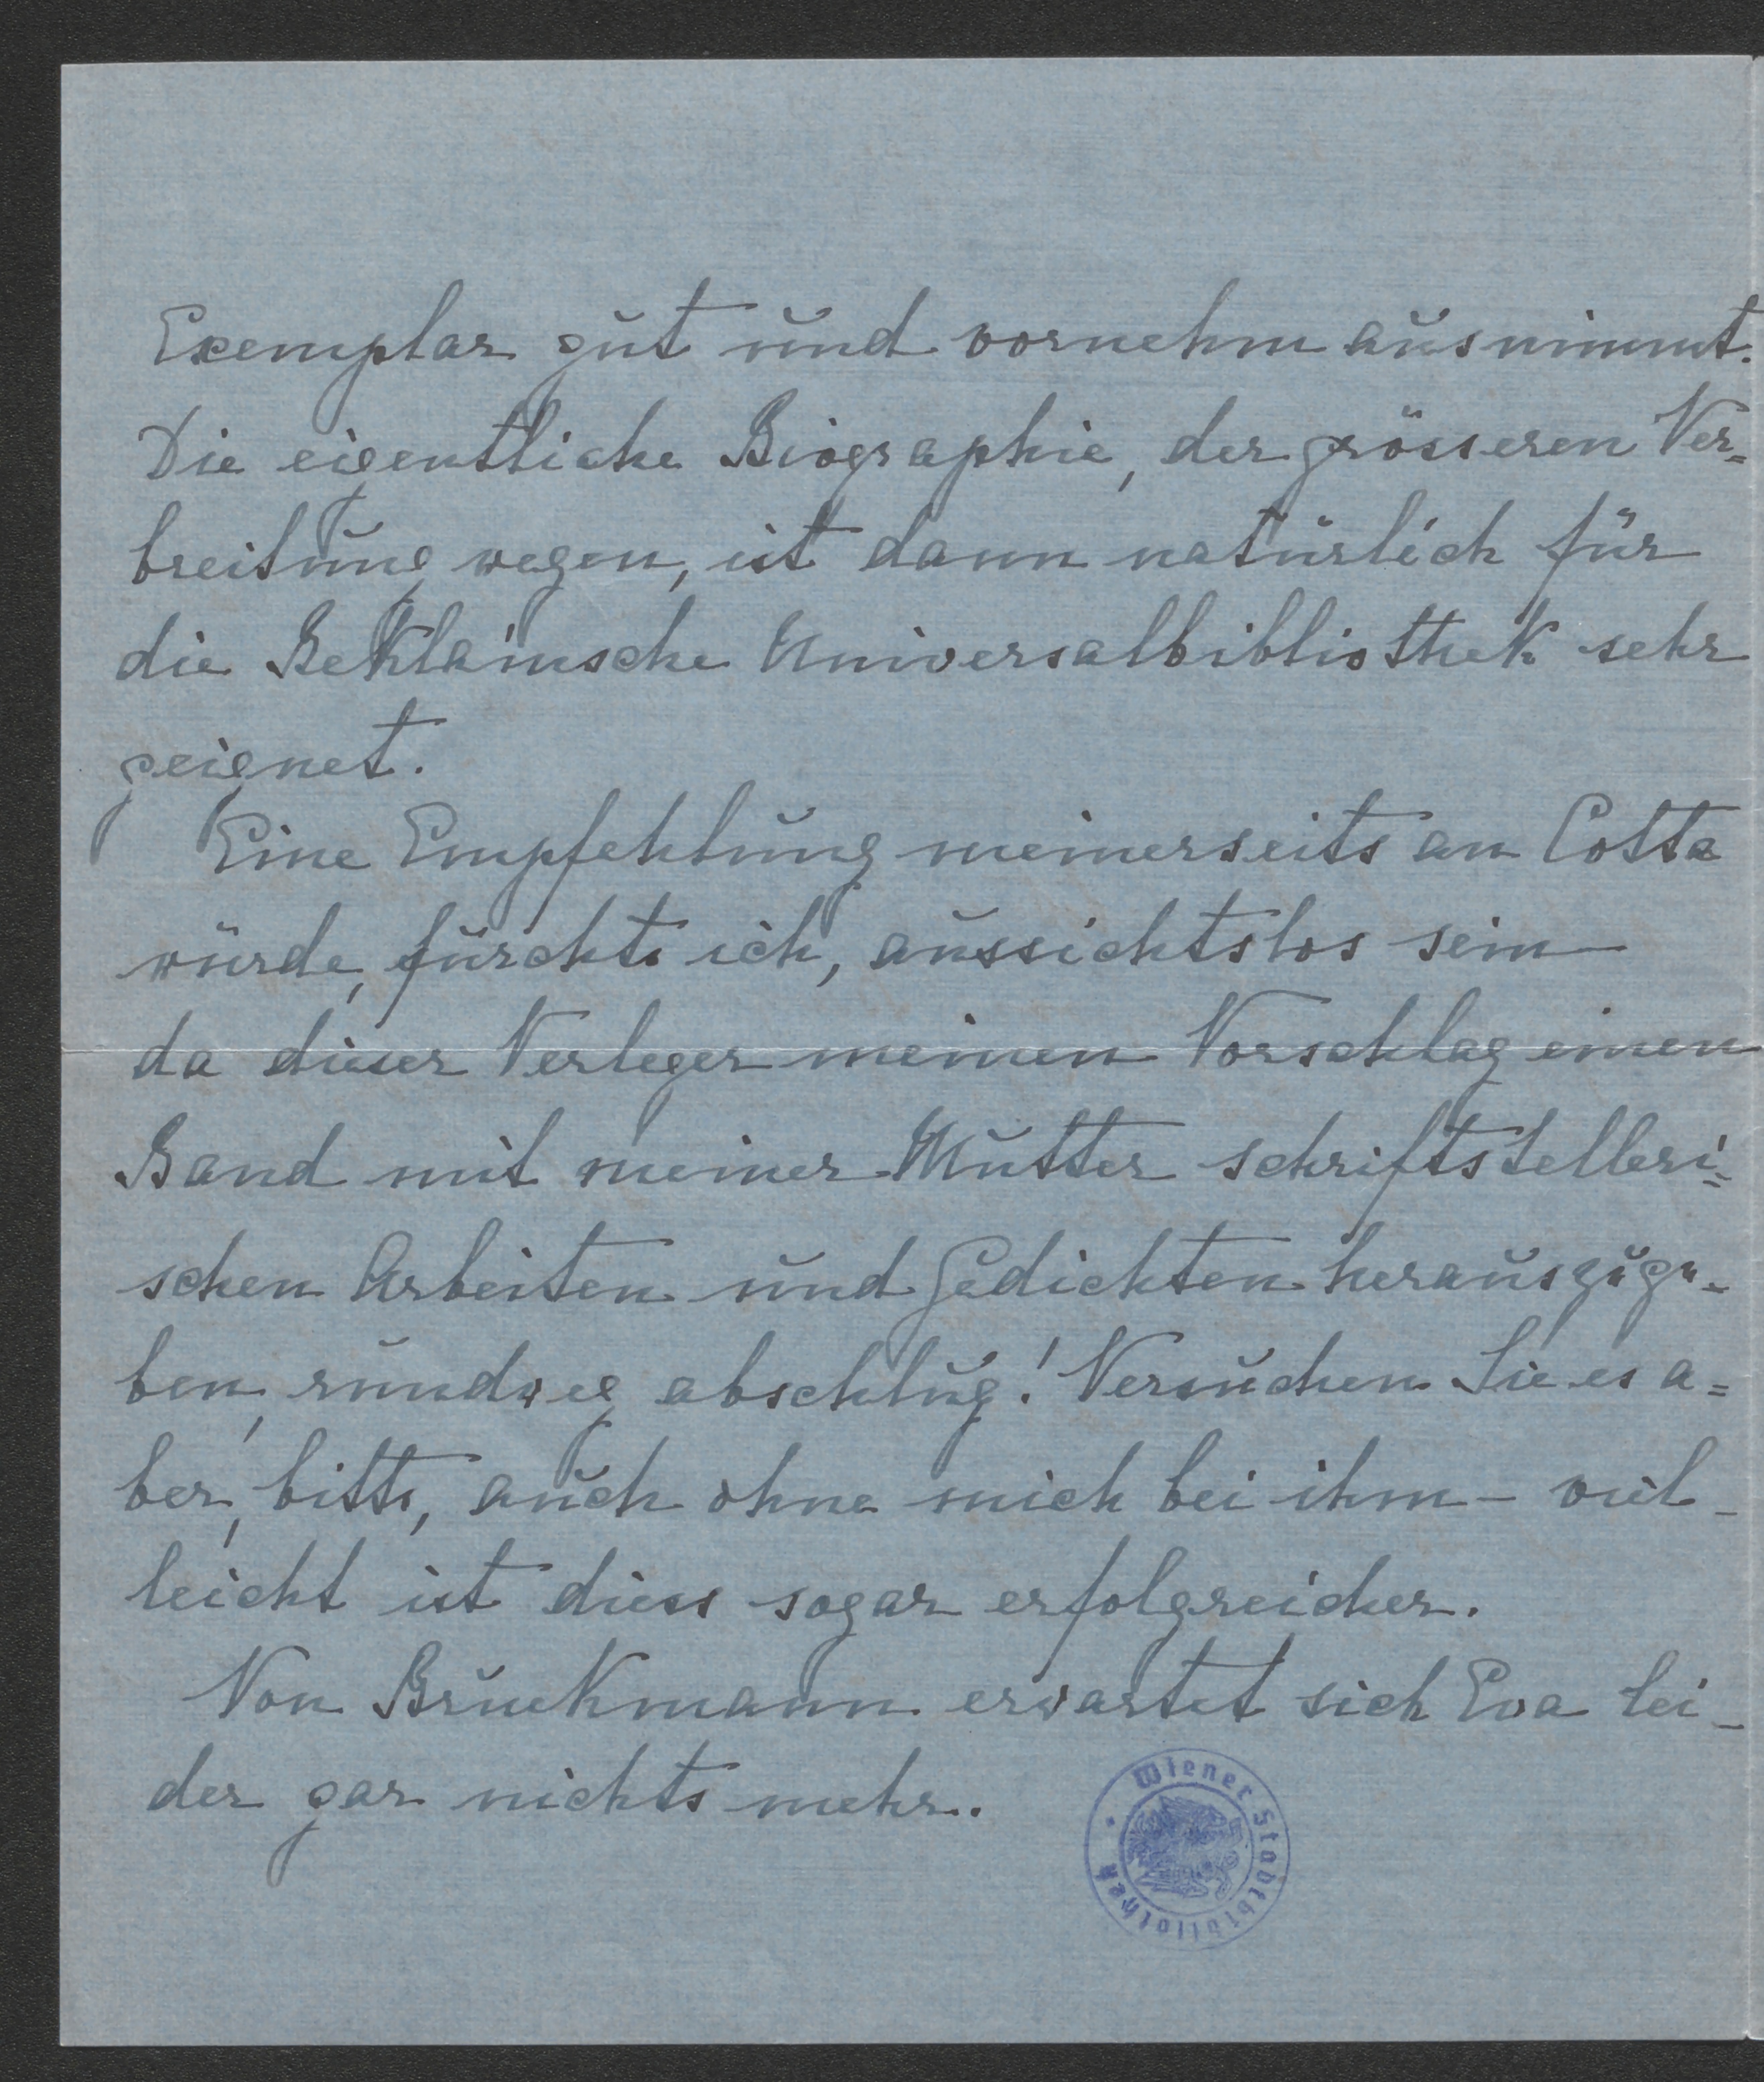 Exemplar gut und vornehm ausnimmt.
Die eigentliche Biographie, der grösseren Ver=
breitung wegen, ist dann natürlich für
die Reklam'sche Universalbibliothek sehr
geignet.
Eine Empfehlung meinerseits an Cotta
würde, fürchte ich, aussichtslos sein
da dieser Verleger meinen Vorschlag einen
Band mit meiner Mutter schriftstelleri=
schen Arbeiten und Gedichten herauszuge-
ben, rundweg abschlug! Versuchen Sie es a=
ber, bitte, auch ohne mich bei ihm – viel-
leicht ist diess sogar erfolgreicher.
Von Bruckmann erwartet sich Eva lei-
der gar nichts mehr..
Wiener Stadtbibliothek